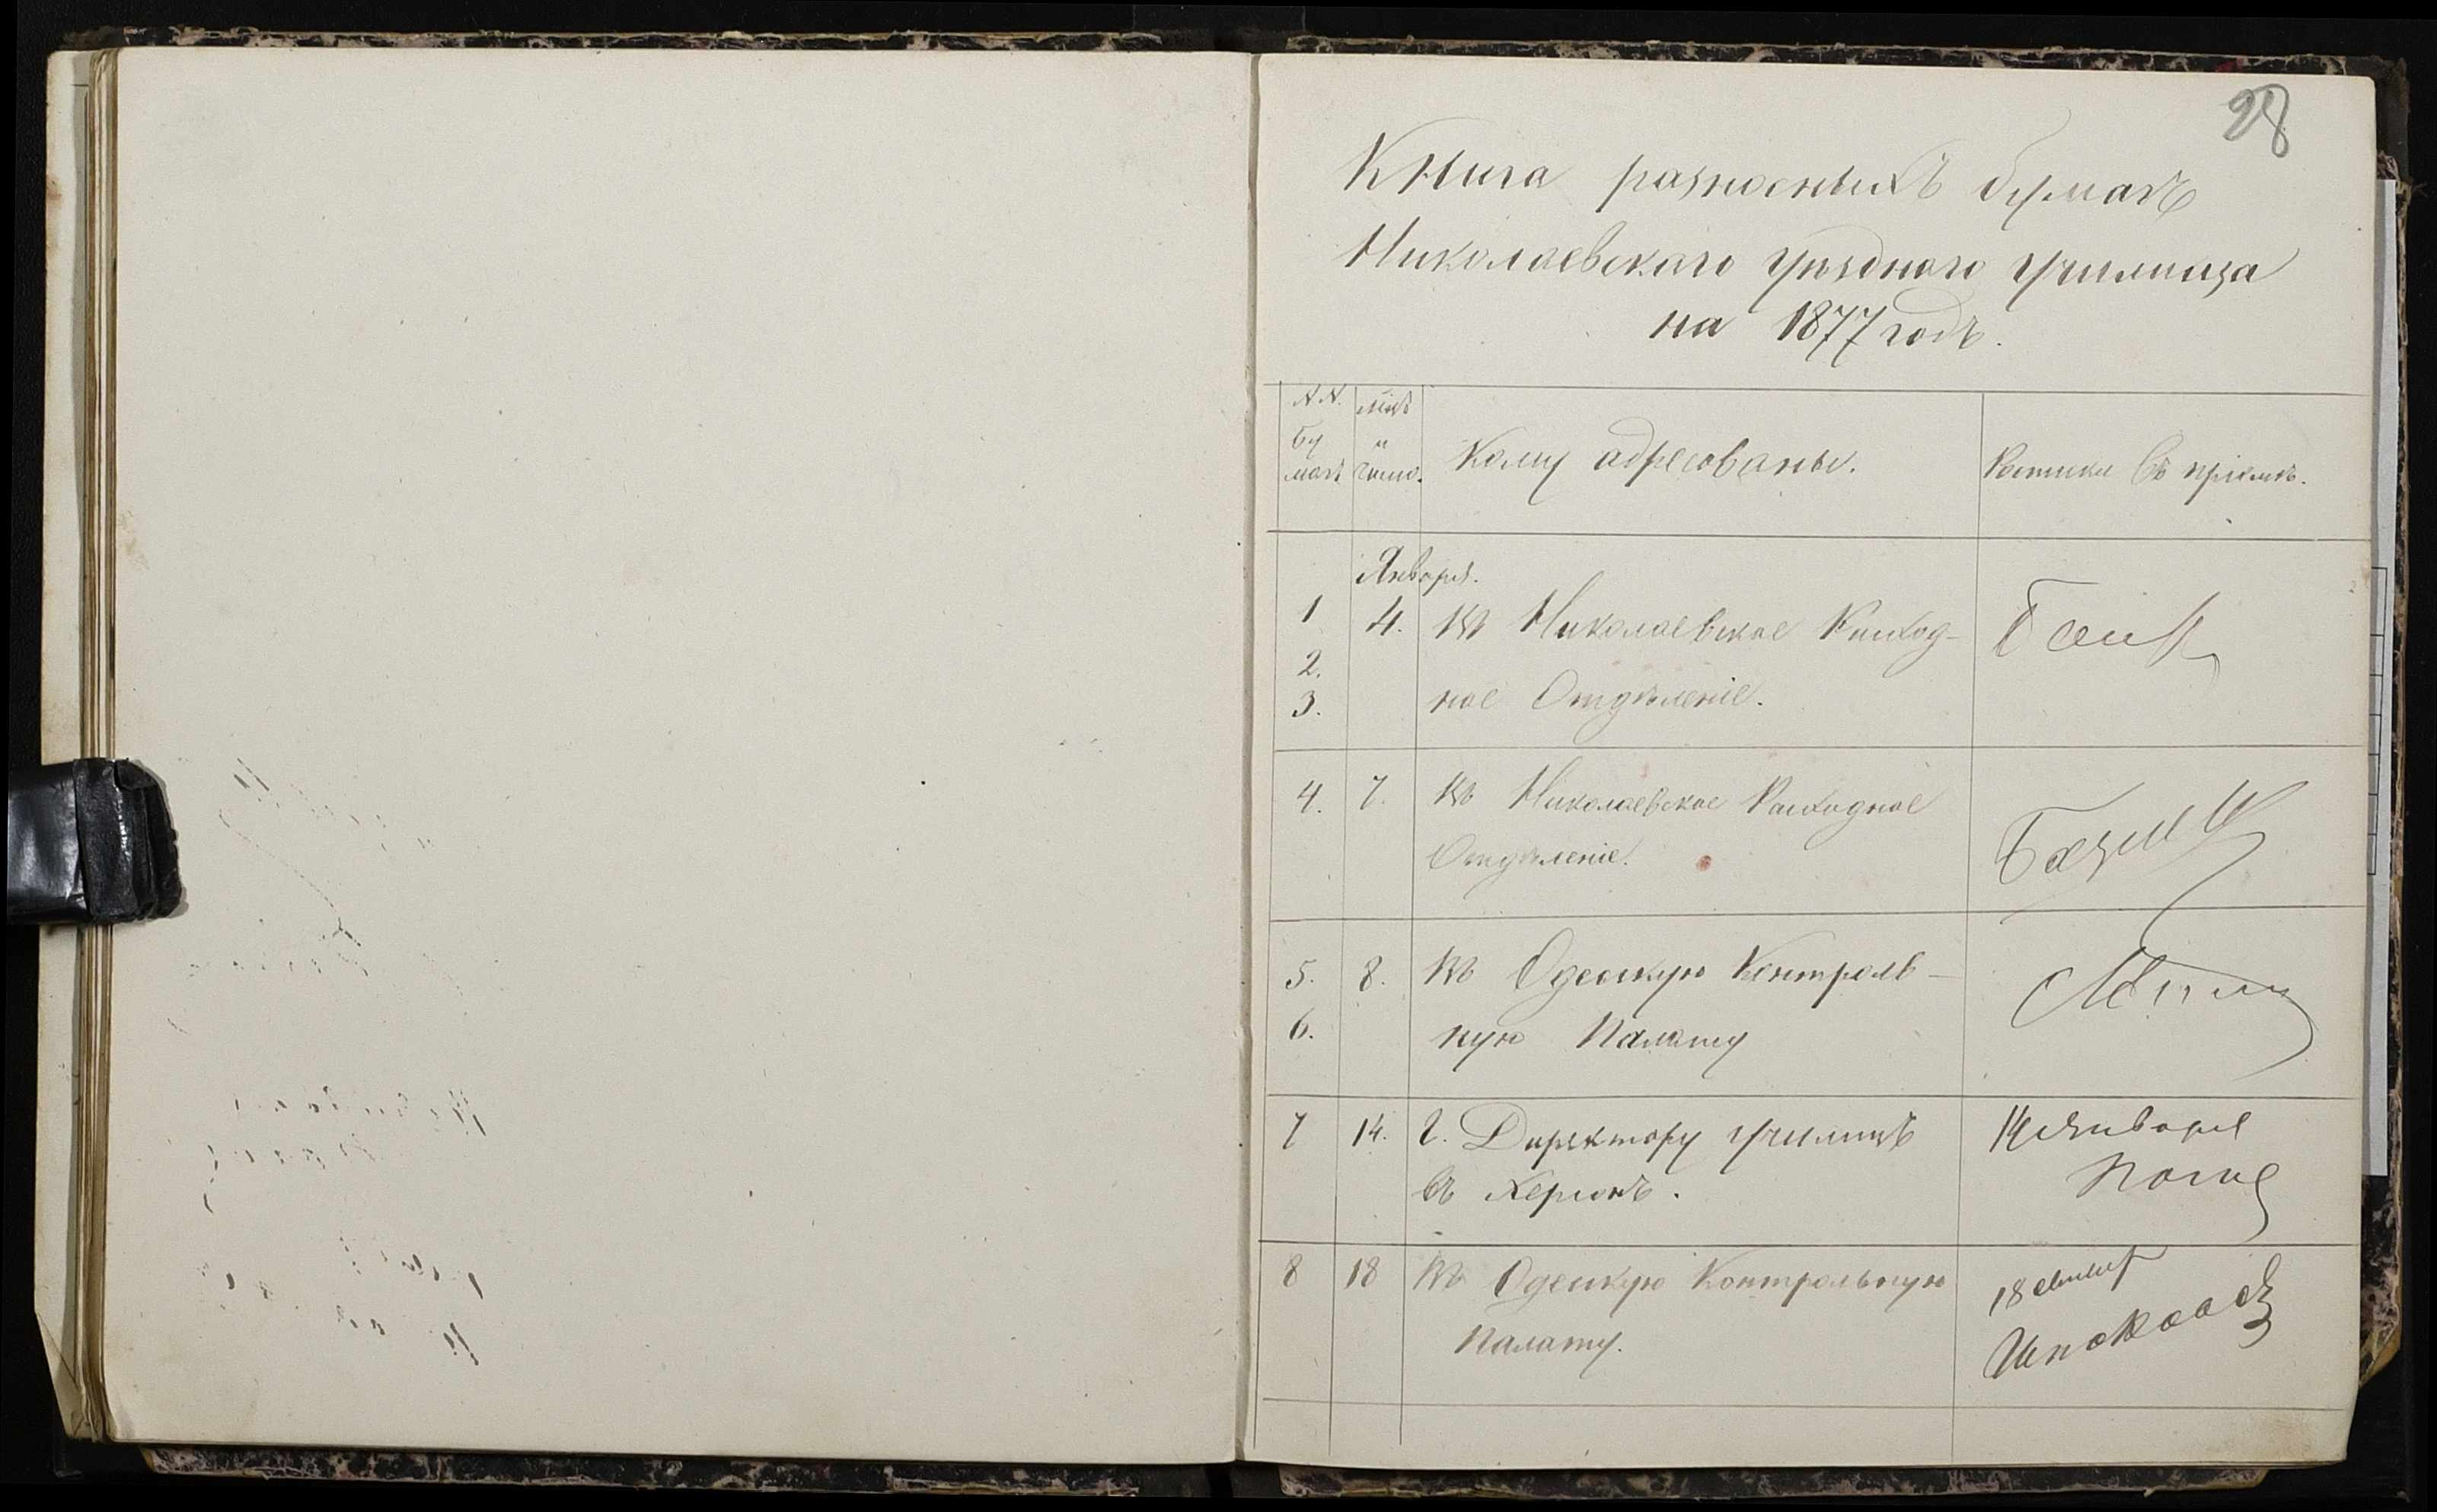 28
Книга разносныхъ бумагъ
Николаевскаго уѣзднаго училища
на 1877 годъ.
№№ бумагъ
мцъ и число.
Кому адресованы.
Росписки въ пріемкѣ.
Января.
1 4. Въ Николаевское Расход-
2.
3. ное Отдѣленіе.
4. 7. Въ Николаевское Расходное
Отдѣленіе.
5. 8. Въ Одесскую Контроль-
6. ную Палату
7 14. Г. Директору училищъ
14 января
въ Херсонѣ.
8 18 Въ Одесскую Контрольную
18
Палату.